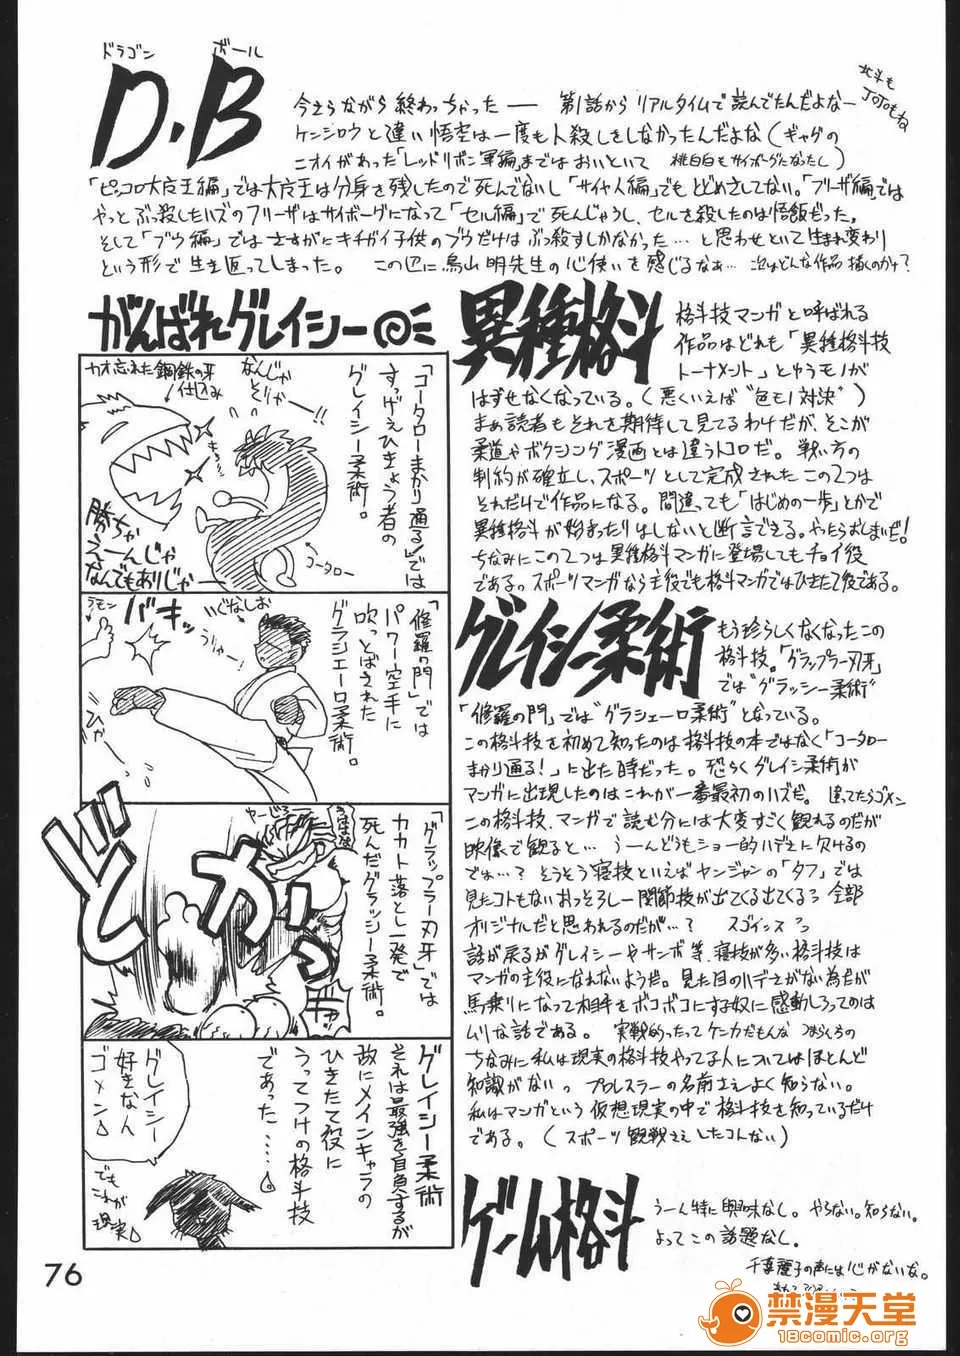 ドラゴン ボール
D.B
北斗も
JOJOもね
今さらながら終わっちゃった ── 第1話からリアルタイムで読んでたんだよなー
ケンシロウと違い悟空は一度も人殺しをしなかったんだよな(ギャグの
ニオイがあった「レッドリボン軍編」まではおいといて 桃白白もサイボーグになったし)
「ピッコロ大魔王編」では大魔王は分身を残したので死んでないし「サイヤ人編」でもとどめさしてない。「フリーザ編」では
やっとぶっ殺したハズのフリーザはサイボーグになって「セル編」で死んじゃうし、セルを殺したのは悟飯だった。
そして「ブウ編」ではさすがにキチガイ子供のブウだけはぶっ殺すしかなかった…と思わせといて生まれ変わり
という形で生き返ってしまった。 この辺に鳥山明先生の心使いを感じるなぁ… 次はどんな作品描くのかナ?
がんばれグレイシー
カオ忘れた 鋼鉄の牙
仕込み
なんじゃ
そりゃー!!
「コータローまかり通る!」では
すっげえひきょう者の
グレイシー柔術。
勝ちゃ
えーんじゃ
なんでもありじゃー
コータロー
ラモン
バキッ
いぐなしお
うりゃー
「修羅の門」では
パワー空手に
吹っとばされた
グラシェーロ柔術。
どかっ
「グラップラー刃牙」では
カカト落とし一発で
死んだグラッシー柔術。
グレイシー柔術
それは最強を自負するが
故にメインキャラの
ひきたて役に
うってつけの格斗技
であった……
グレイシー
好きなん
ゴメン
でも
これが
現実
異種格斗
格斗技マンガと呼ばれる
作品はどれも「異種格斗技
トーナメント」とゆうモノが
はずせなくなっている。(悪くいえば“色モノ対決”)
まぁ読者もそれを期待して見てるわけだが、そこが
柔道やボクシング漫画とは違うトコロだ。戦い方の
制約が確立し、スポーツとして完成されたこの2つは
それだけで作品になる。間違っても「はじめの一歩」とかで
異種格斗が始まったりはしないと断言できる。やったらおしまいだ!
ちなみにこの2つは異種格斗マンガに登場してもチョイ役
である。スポーツマンガなら主役でも格斗マンガではひきたて役である。
グレイシー柔術
もう珍らしくなくなったこの
格斗技。「グラップラー刃牙」
では“グラッシー柔術”
「修羅の門」では“グラシェーロ柔術”となっている。
この格斗技を初めて知ったのは格斗技の本ではなく「コータロー
まかり通る!」に出た時だった。恐らくグレイシ柔術が
マンガに出現したのはこれが一番最初のハズだ。違ってたらゴメン
この格斗技、マンガで読む分には大変すごく観れるのだが
映像で観ると… うーんどうもショー的ハデさに欠けるの
でね…? そうそう寝技といえばヤンジャンの「タフ」では
見たコトもないおっそろしー関節技が出てくる出てくる 全部
オリジナルだと思われるのだが…? スゴインス
話が戻るがグレイシーやサンボ等、寝技が多い格斗技は
マンガの主役になれないようだ。見た目のハデさがない為だが
馬乗りになって相手をボコボコにする奴に感動しろってのは
ムリな話である。 実戦的ったってケンカだもんな
ちなみに私は現実の格斗技やってる人についてはほとんど
知識がない。プロレスラーの名前さえよく知らない。
私はマンガという仮想現実の中で格斗技を知っているだけ
である。(スポーツ観戦さえしたコトない)
ゲーム格斗
うーん特に興味なし。やらない。知らない。
よってこの話題なし。
千葉麗子の声には心がないな。
76
禁漫天堂
18comic.org